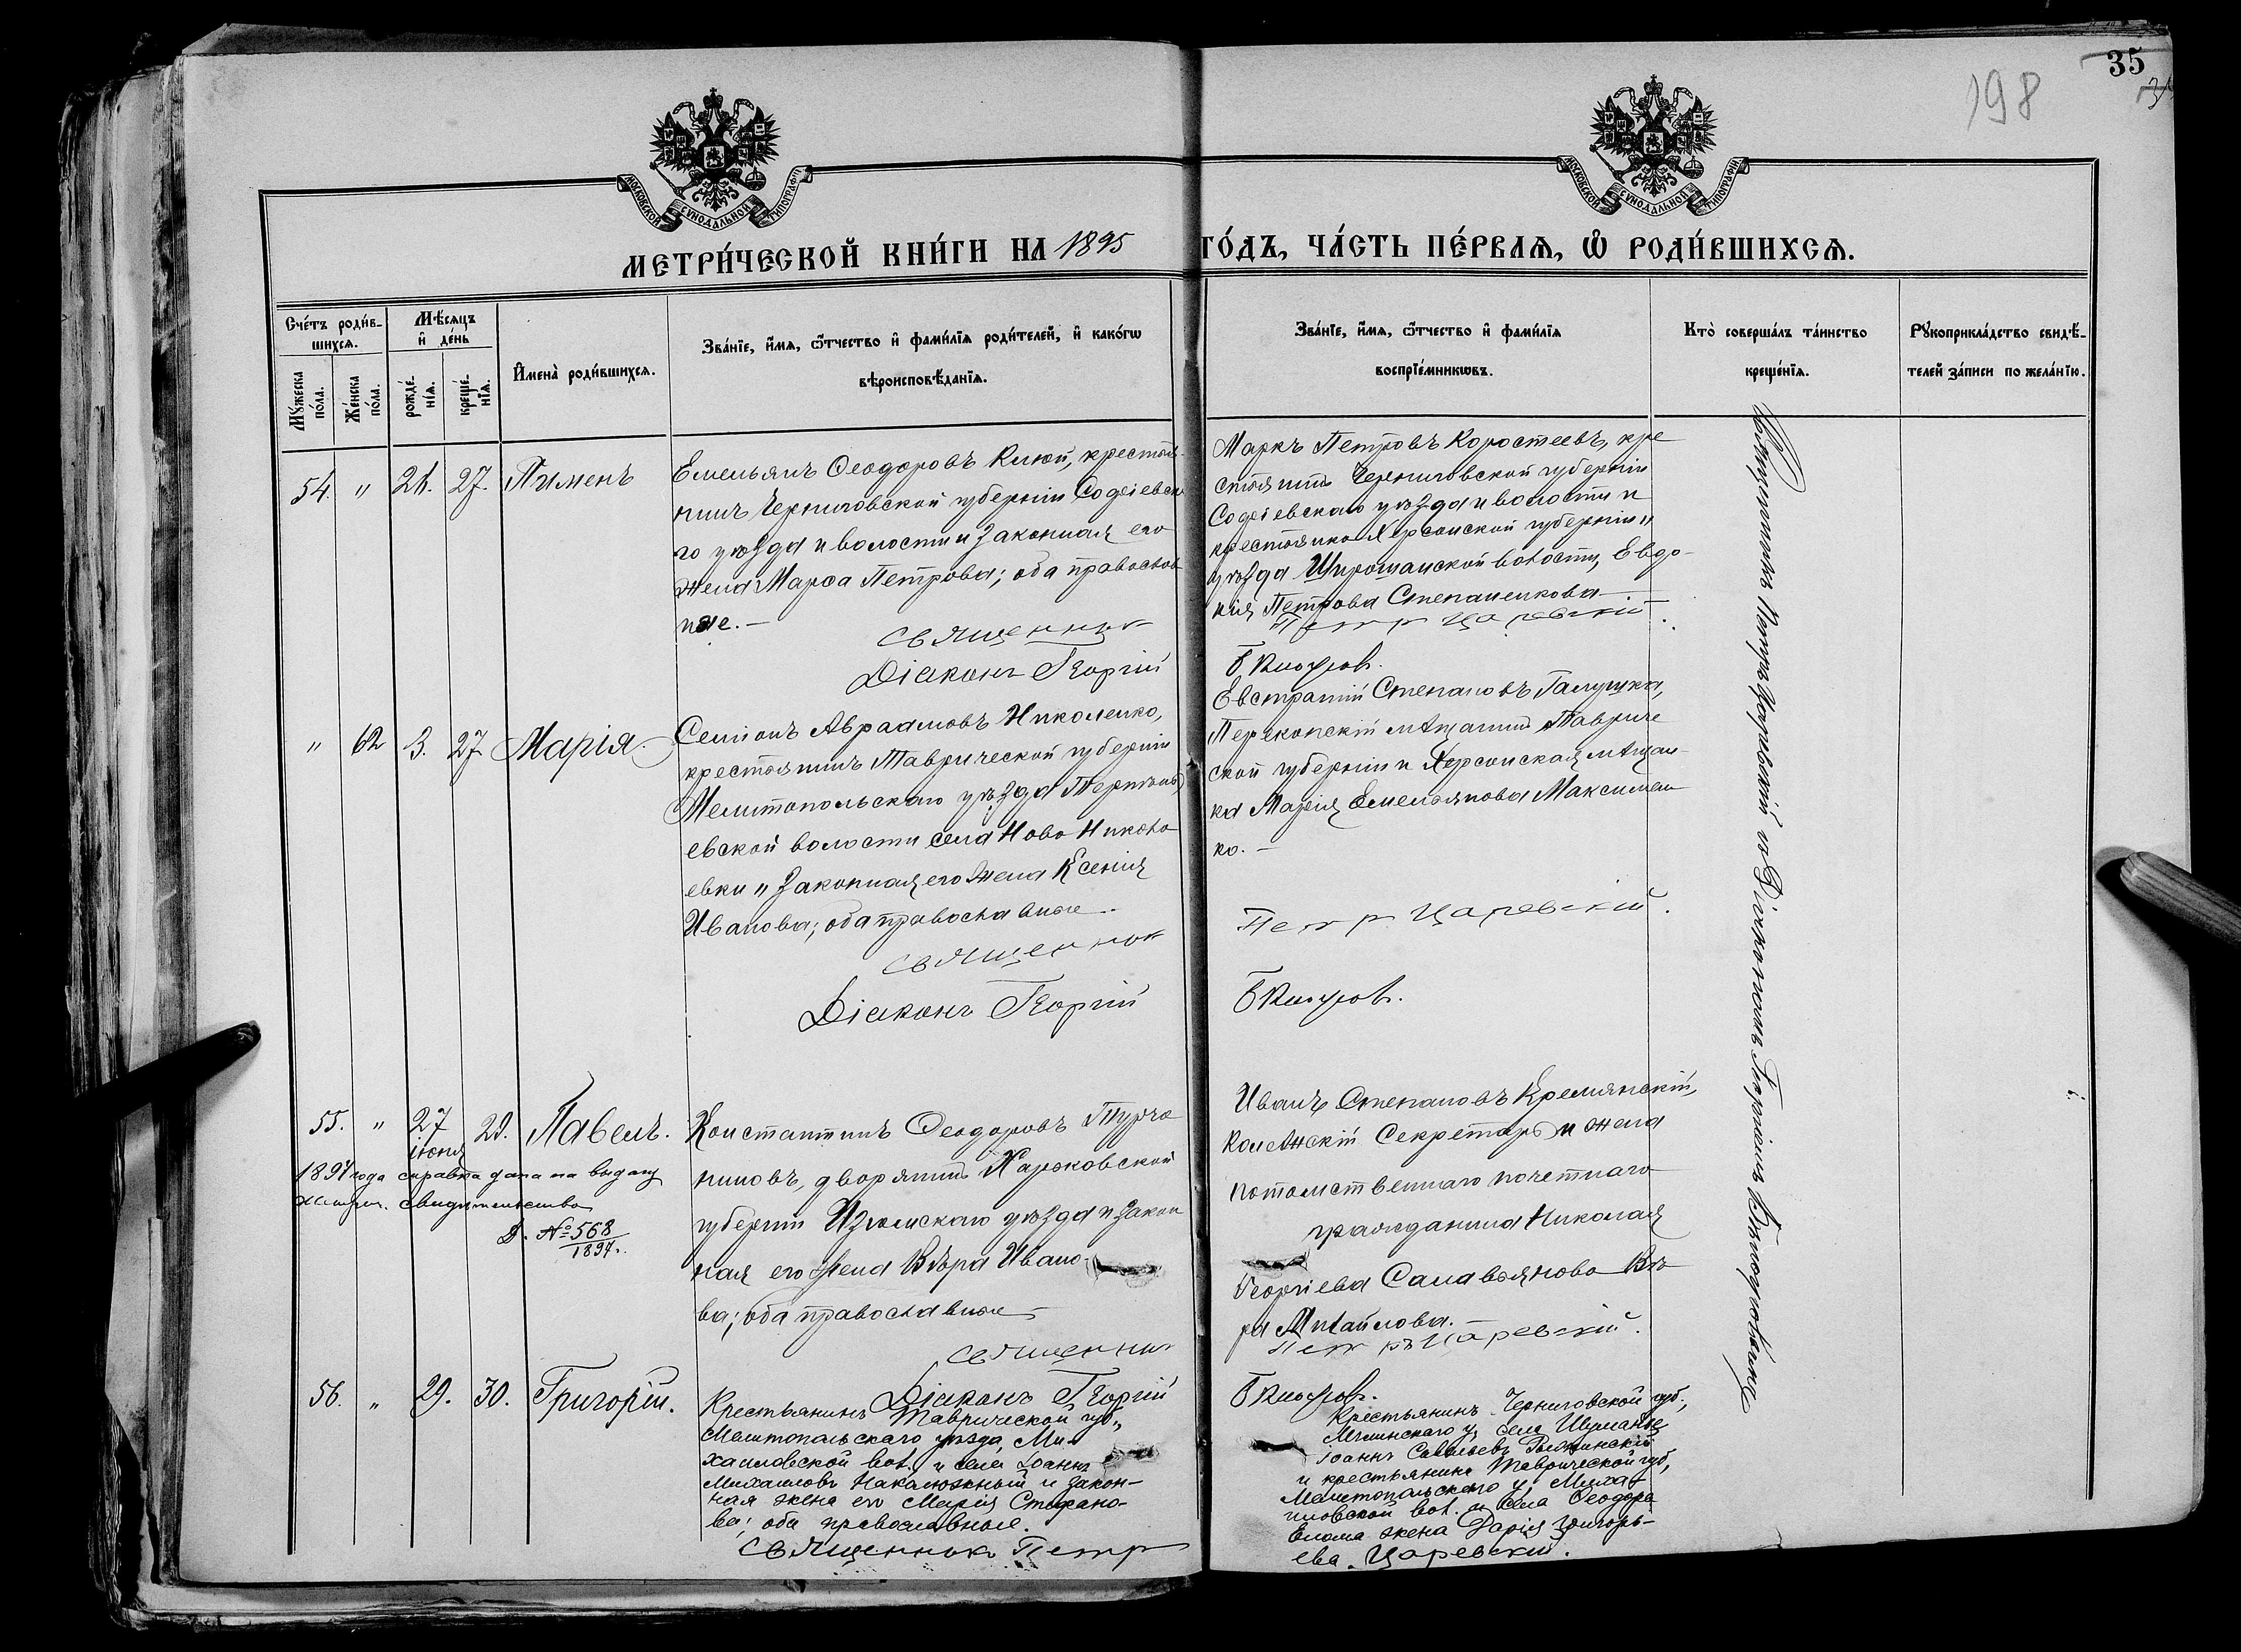 35
198
МОСКОВСКОЙ СУНОДАЛЬНОЙ ТИПОГРАФІИ
МОСКОВСКОЙ СУНОДАЛЬНОЙ ТИПОГРАФІИ
МЕТРИ́ЧЕСКОЙ КНИ́ГИ НА 1895 ГО́ДЪ, ЧА́СТЬ ПЕ́РВАЯ, Ѡ РОДИ́ВШИХСЯ.
Сче́тъ роди́в-
шихся.
Мѣ́сяцъ
и҆ де́нь
Мꙋ́жеска
по́ла.
Же́нска
по́ла.
рожде́-
нїя.
креще́-
нїя.
И҆мена̀ роди́вшихся.
Зва́нїе, и҆́мя, ѻ҆́тчество и҆ фами́лїя роди́телей, и҆ како́гѡ
вѣроисповѣ́данїя.
Зва́нїе, и҆́мя, ѻ҆́тчество и҆ фами́лїя
воспрїе́мникѡвъ.
Кто̀ соверша́лъ та́инство
креще́нїя.
Рꙋкоприкла́дство свидѣ́-
телей за́писи по жела́нїю.
54. " 21. 27. Пименъ
Емельянъ Ѳеодоровъ Клюй, крестья-
нинъ Черниговской губерніи
го уѣзда и волости и законная его
жена Марѳа Петрова; оба православ
ные. —
Священникъ
Діаконъ Георгій
Маркъ Петровъ Коростеевъ, кре
стьянинъ Черниговской губерніи
уѣзда и волости и
крестьянка Херсонской губерніи и
уѣзда Широчанской волости, Евдо-
кія Петрова Степаненкова. —
Петръ Царевскій.
" 62 3. 27 Марія.
Семіонъ Авраамовъ Николенко,
крестьянинъ Таврической губерніи
Мелитопольскаго уѣзда
евской волости села Ново Никола
евки и законная его жена Ксенія
Иванова; оба православные.
Священник
Діаконъ Георгій
Евстратій Степановъ Галушка,
Перекопскій мѣщанинъ Тавриче
ской губерніи и Херсонская мѣщан-
ка Марія Емельянова Максимен
ко. —
Петр Царевскій.
55. " 27 29. Павелъ.
іюня
1897 года справка дана на выдачу
метрич. свидѣтельства
Д. № 568
1897.
Константинъ Ѳеодоровъ Турча
ниновъ, дворянинъ Харьковской
губерніи Изюмскаго уѣзда и закон
ная его жена Вѣра Ивано-
ва; оба православные —
Священник
Діаконъ Георгій
Иванъ Степановъ Кремянскій,
Колежскій Секретарь и жена
потомственнаго почетнаго
гражданина Николая
Георгіева Салавьянова Вѣ
ра Михайлова. —
Петръ Царевскій.
56. " 29. 30. Григорій.
Крестьянинъ Таврической губ.,
Мелитопольскаго уѣзда, Ми-
хайловской вол. и села Іоаннъ
Михаиловъ Накалюжный и закон-
ная жена его Марія Стефано-
ва; оба православные.
Священникъ Петр
Крестьянинъ Черниговской губ.,
у, села
Іоаннъ Савельевъ
и крестьянина Таврической губ,
Мелитопольскаго у, Миха-
йловской вол. и села Ѳеодора
жена Дарія Григорь-
ева. Царевскій.
Священникъ Петръ Царевскій съ Діакономъ Георгіемъ